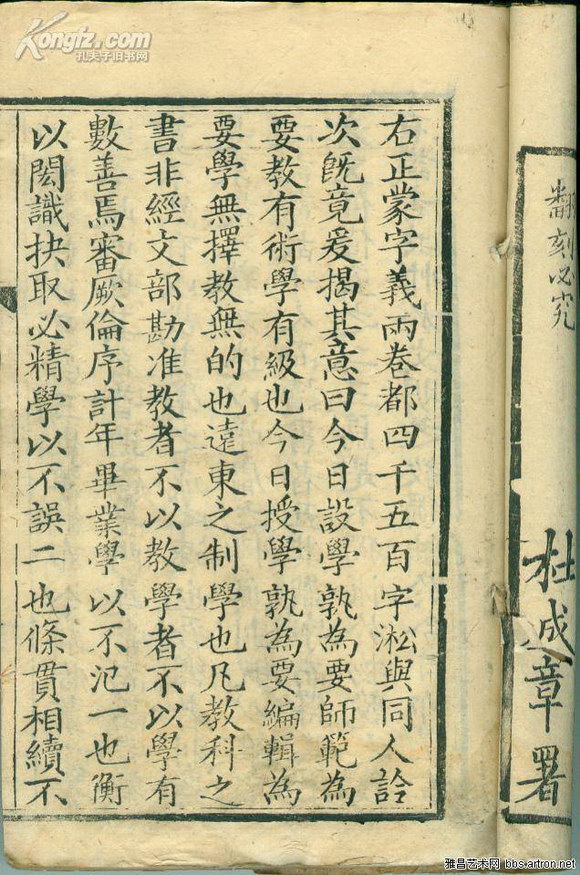 翻刻必究
杜成章署
右正蒙字義兩卷都四千五百字淞與同人詅
次旣竟爰揭其意曰今日設學孰為要師範為
要教有術學有級也今日授學孰為要編輯為
要學無擇教無的也遠東之制學也凡教科之
書非經文部勘准教者不以教學者不以學有
數善焉審厥倫序計年畢業學以不氾一也衡
以閎識抉取必精學以不誤二也條貫相續不
Kongfz.com
孔夫子旧书网
雅昌艺术网 bbs.artron.net